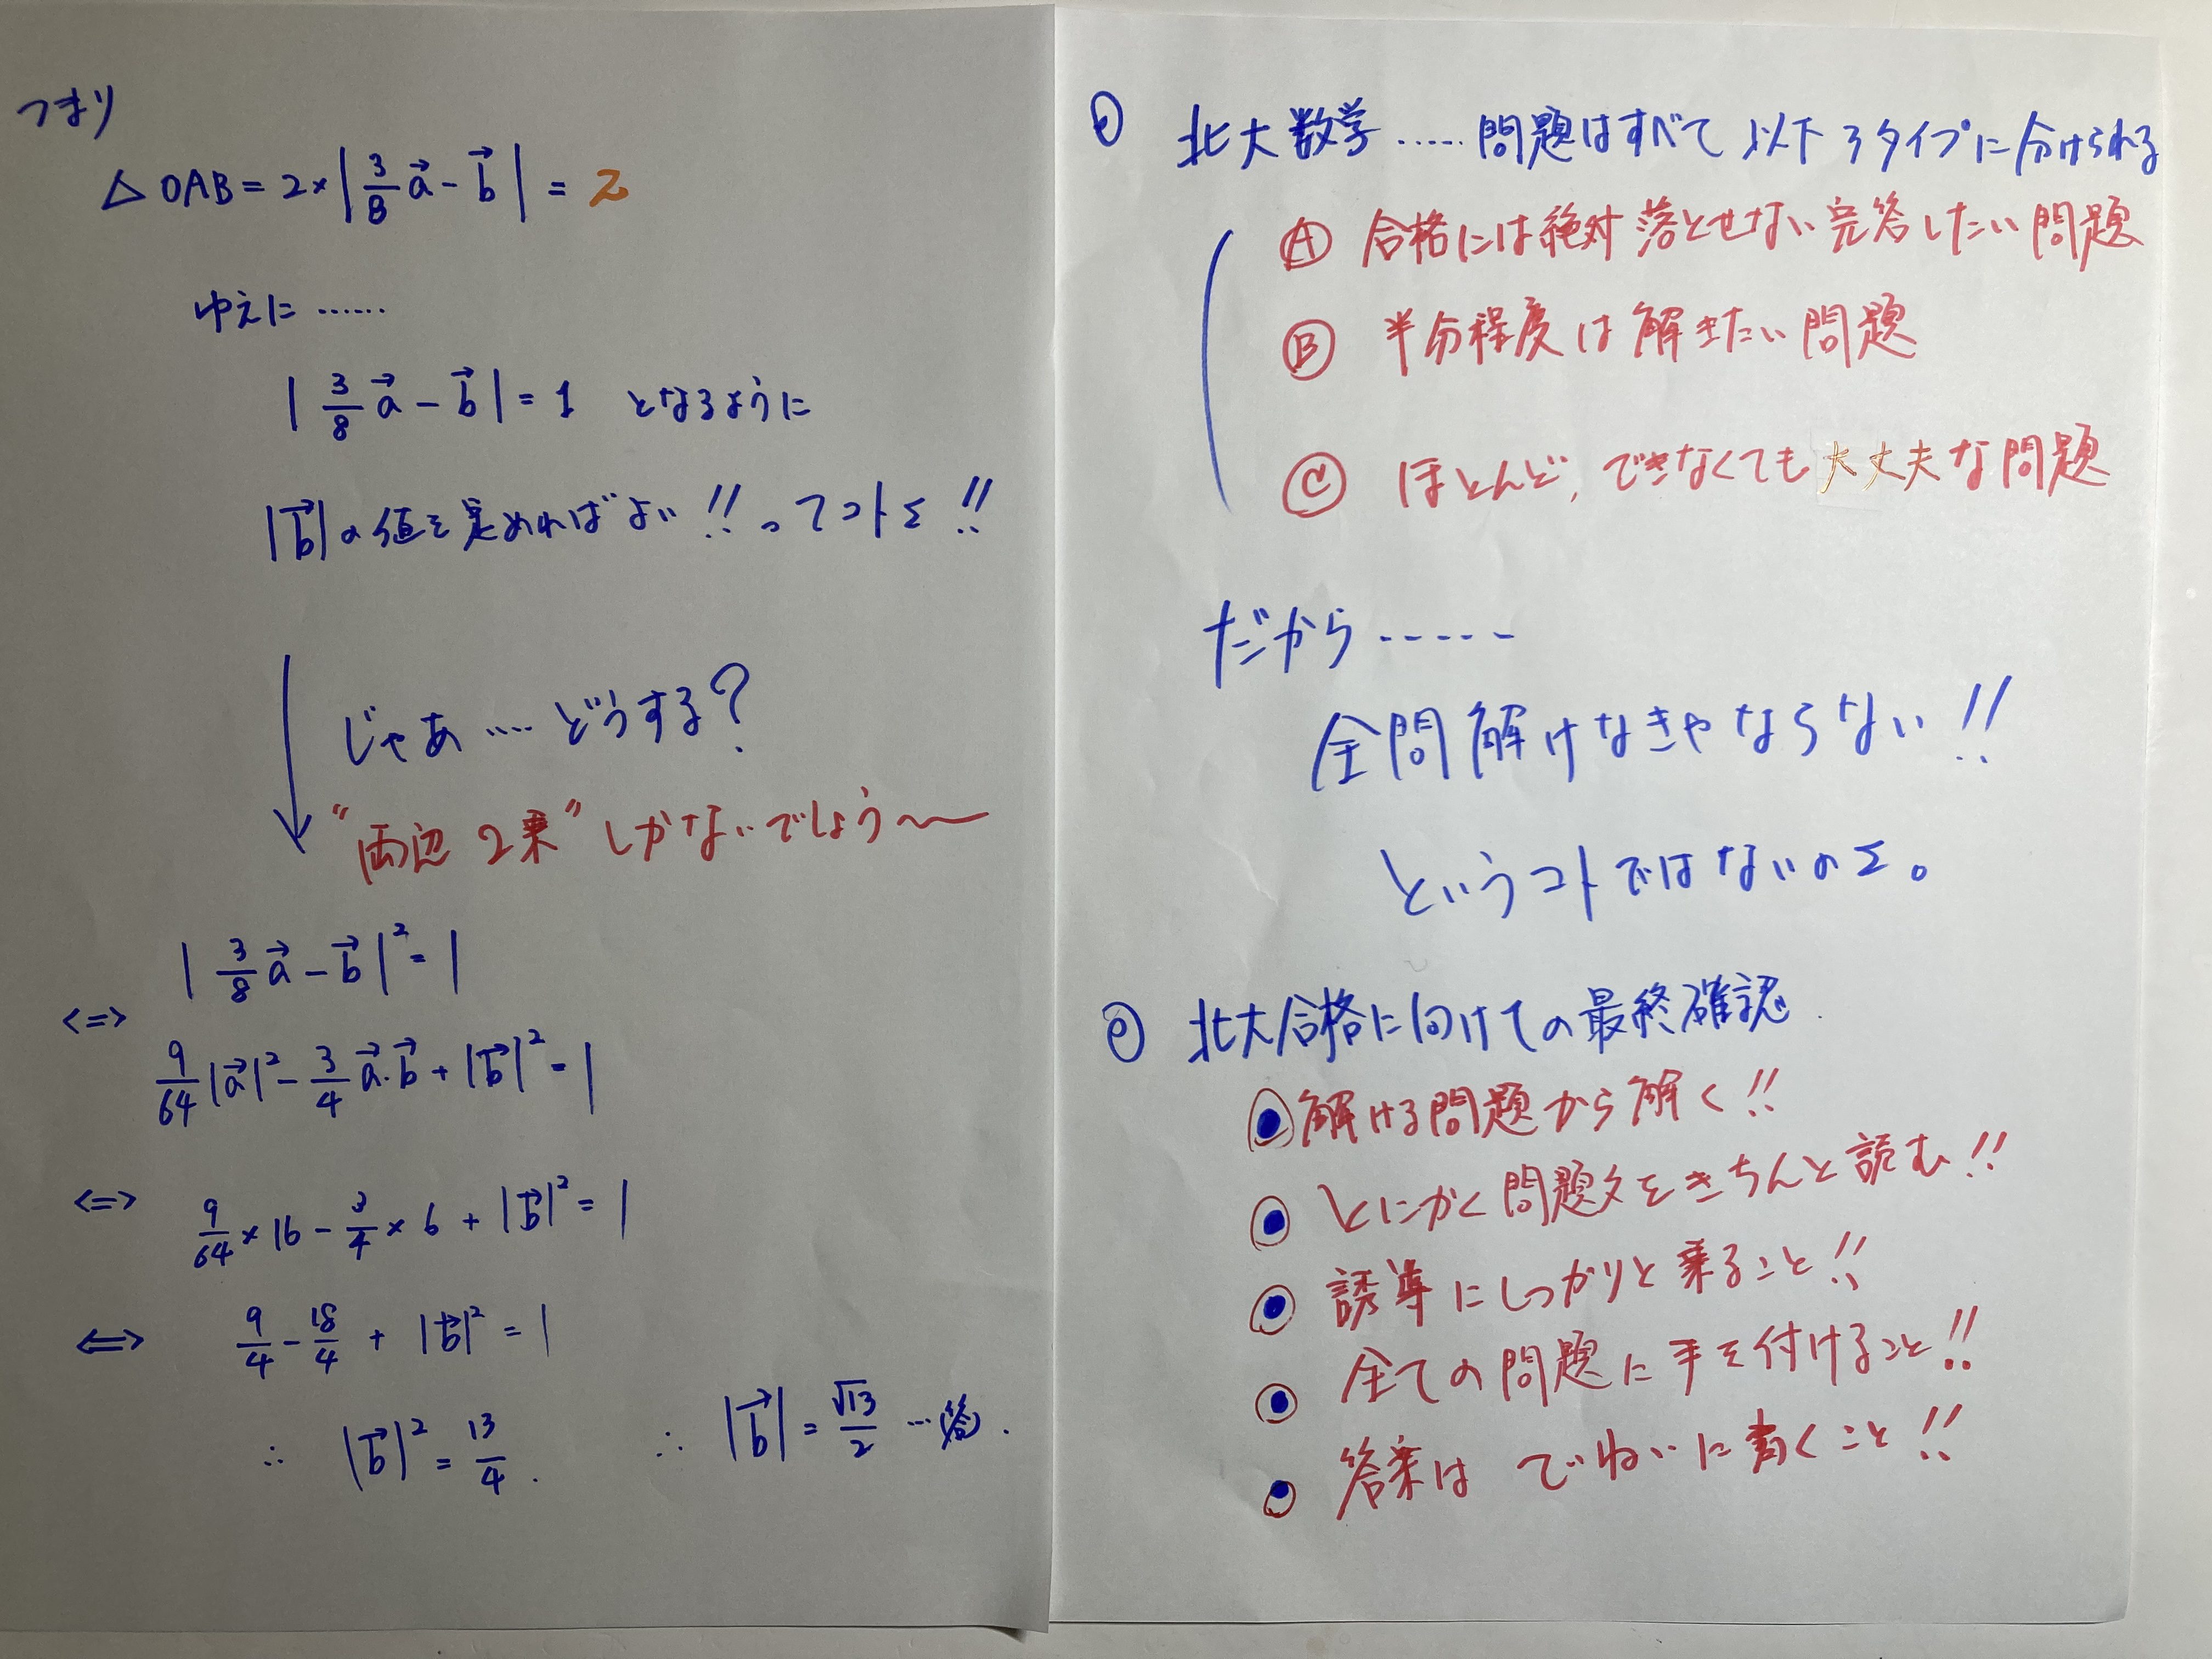 つまり
△OAB = 2×|3/8 a→ - b→| = 2
ゆえに……
|3/8 a→ - b→| = 1 となるように
|b→|の値を定めればよい!! ってコトさ!!
じゃあ…. どうする?
"両辺2乗"しかないでしょう〜
|3/8 a→ - b→|² = 1
<=> 9/64|a→|² - 3/4 a→・b→ + |b→|² = 1
<=> 9/64×16 - 3/4×6 + |b→|² = 1
<=> 9/4 - 18/4 + |b→|² = 1
∴ |b→|² = 13/4. ∴ |b→| = √13/2 …答.
北大数学……問題はすべて以下3タイプに分けられる
Ⓐ 合格には絶対落とせない完答したい問題
Ⓑ 半分程度は解きたい問題
Ⓒ ほとんど,できなくても大丈夫な問題
だから-----
全問解けなきゃならない!!
というコトではないのさ。
北大合格に向けての最終確認
解ける問題から解く!!
とにかく問題文をきちんと読む!!
誘導にしっかりと乗ること!!
全ての問題に手を付けること!!
答案はていねいに書くこと!!